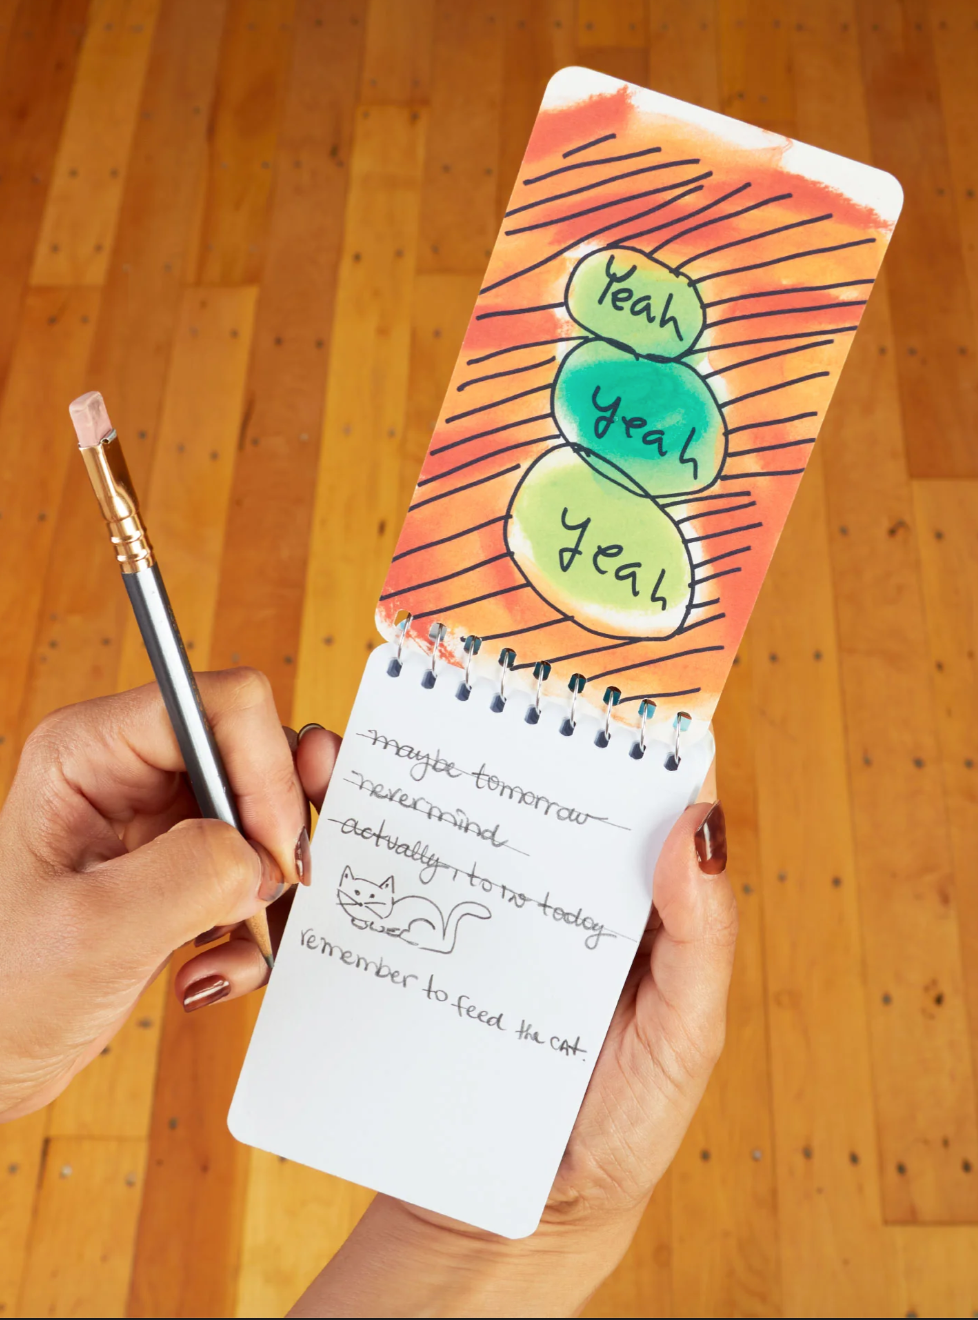 Yeah
yeah
yeah
maybe tomorrow
nevermind
actually, today
remember to feed the cat.